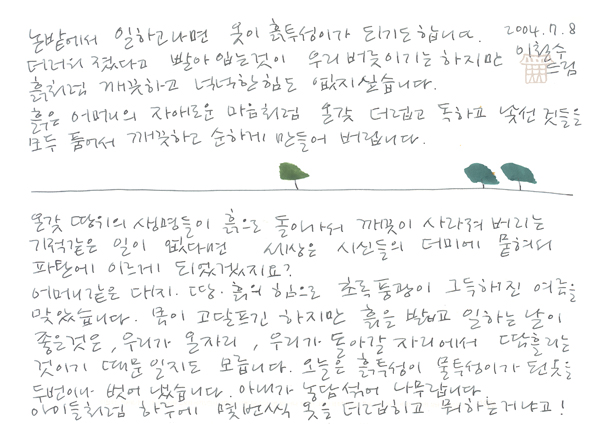 논밭에서 일하고나면 옷이 흙투성이가 되기도합니다. 2004.7.8
더러워졌다고 빨아 입는것이 우리버릇이기는 하지만 이철수
흙처럼 깨끗하고 넉넉한힘도 없지싶습니다. 드림
흙은 어머니의 자애로운 마음처럼 온갖 더럽고 독하고 낯선 것들을
모두 품어서 깨끗하고 순하게 만들어 버립니다.
온갖 땅위의 생명들이 흙으로 돌아가서 깨끗이 사라져 버리는
기적같은 일이 없다면 세상은 시신들의 더미에 묻혀서
파탄에 이르게 되었겠지요?
어머니같은 대지. 땅. 흙의 힘으로 초록풍광이 그득해진 여름을
맞았습니다. 몸이 고달프긴 하지만 흙을 밟고 일하는 날이
좋은것은, 우리가 온자리, 우리가 돌아갈 자리에서 땀흘리는
것이기 때문일지도 모릅니다. 오늘은 흙투성이 물투성이가 된옷을
두번이나 벗어 냈습니다. 아내가 농담섞어 나무랍니다
아이들처럼 하루에 몇번씩 옷을 더럽히고 뭐하는거냐고!